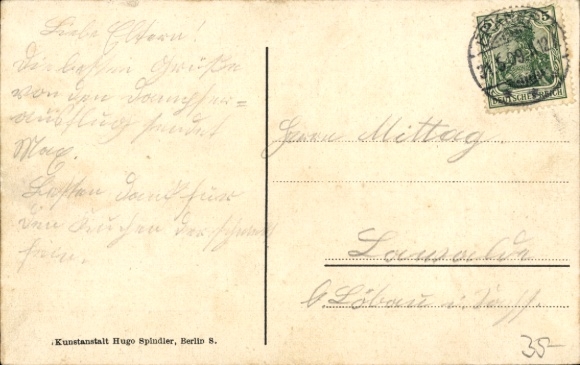 Liebe Eltern!
Die besten Grüße
von den Dampfer=
ausflug sendet
Max.
Besten Dank für
den Kuchen der schmeckt
fein.
Herrn Mittag
Lawalde
b. Löbau i. Sachs.
DEUTSCHES REICH
Kunstanstalt Hugo Spindler, Berlin S.
35-